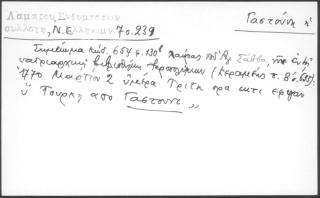 Λάμπρου, Ενθυμήσεων
συλλογή, Ν. Ελληνομν. 7ο. 239
Γαστούνη ἡ
Σημείωμα κώδ. 654 φ. 130β Λαύρας τοῦ Ἁγ. Σάββα, τῆς ἐν τῇ
πατριαρχικῇ βιβλιοθήκῃ Ἱεροσολύμων (Κεραμεὺς τ. Β σ. 635).
1770 Μαρτίου 2 ἡμέρα Τρίτη ὥρα
ἡ Τουρκι απο Γαστουνι "